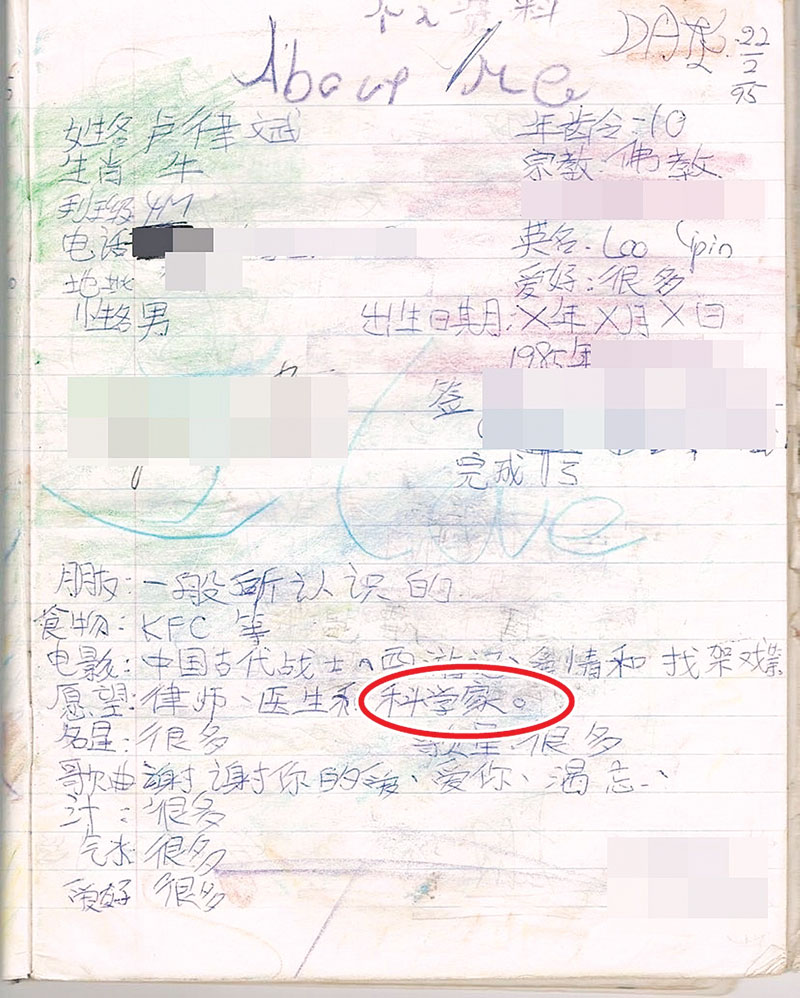 个人资料
About Me
DATE 22/2/95
姓名 卢律斌 年龄:10
生肖 牛 宗教:佛教
班级 4M
电话 英名:Loo Yipin
地址 爱好:很多
性 男 出生日期:X年X月X日
1985年
签
完成
Love
朋友:一般所认识的
食物:KFC 等
电影:中国古代战士、西游记、情和找架戏
愿望:律师、医生和科学家。
名星:很多 歌星:很多
歌曲 谢谢你的爱、爱你、
汁:很多
气水:很多
爱好 很多